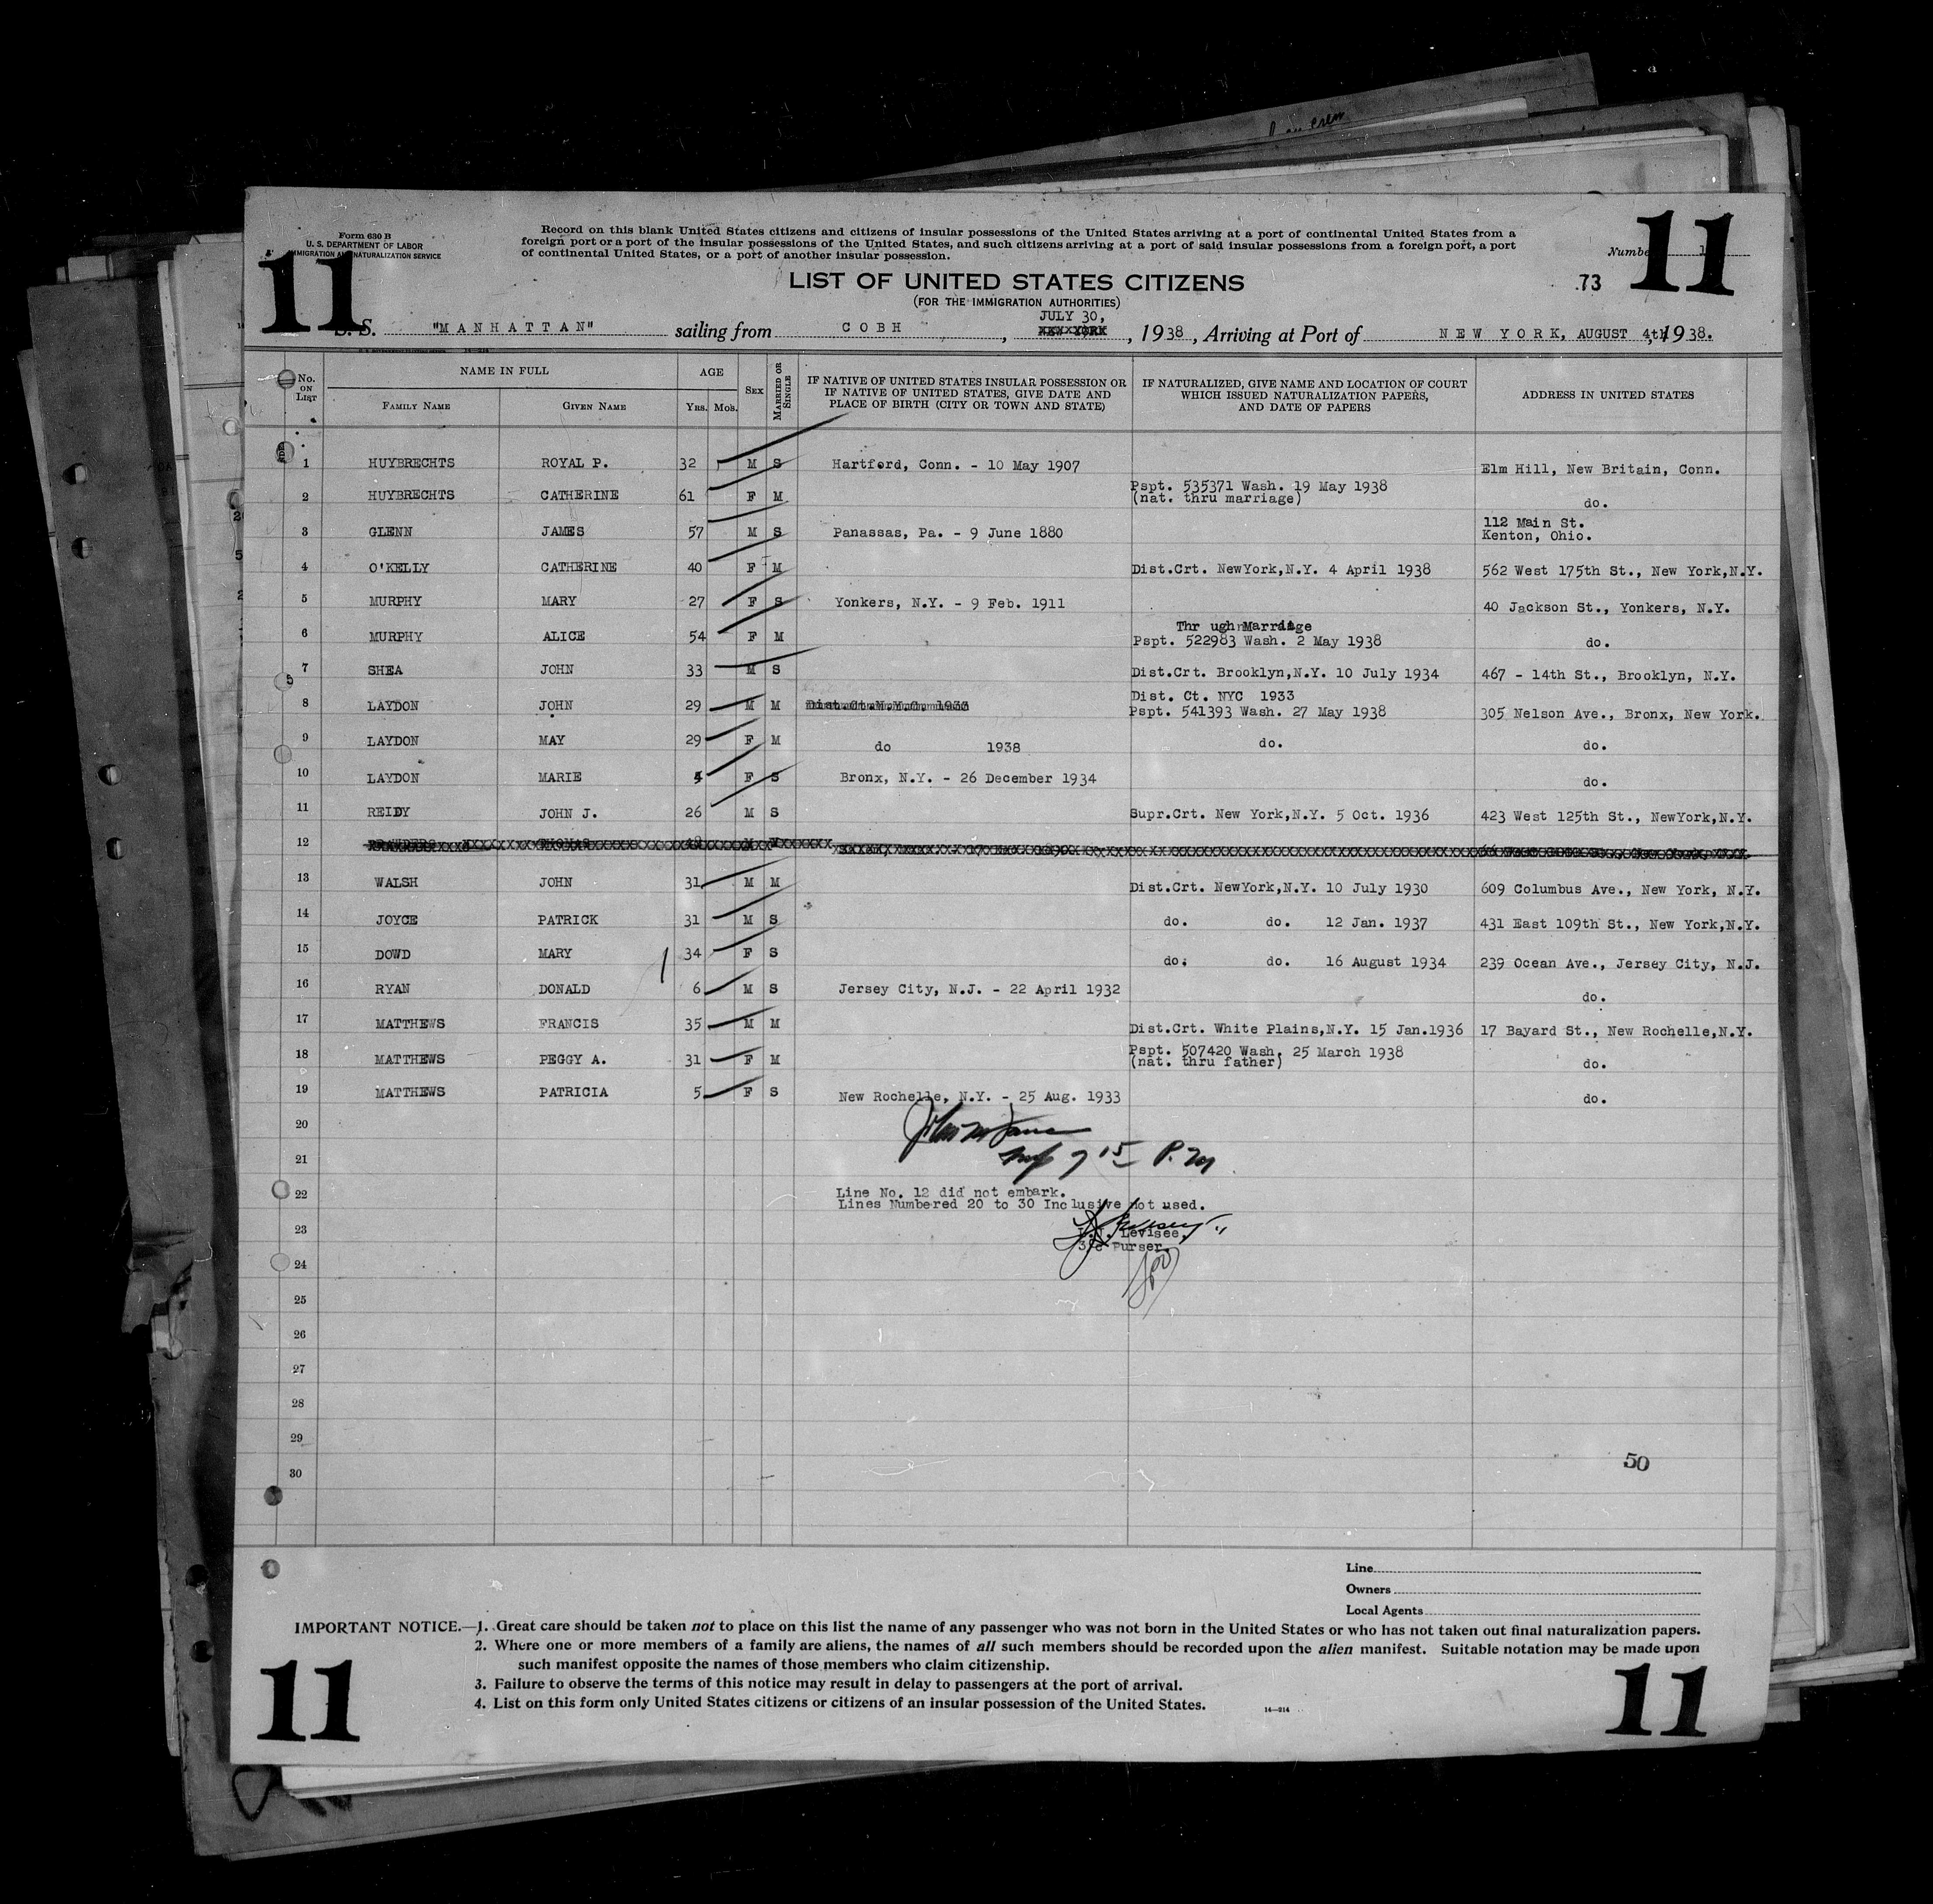 Form 630 B
U. S. DEPARTMENT OF LABOR
IMMIGRATION AND NATURALIZATION SERVICE
Record on this blank United States citizens and citizens of insular possessions of the United States arriving at a port of continental United States from a
foreign port or a port of the insular possessions of the United States, and such citizens arriving at a port of said insular possessions from a foreign port, a port
of continental United States, or a port of another insular possession.
11
11
Number
73
LIST OF UNITED STATES CITIZENS
(FOR THE IMMIGRATION AUTHORITIES)
JULY 30,
S. S. "MANHATTAN" sailing from COBH, NEW YORK, 1938, Arriving at Port of NEW YORK, AUGUST 4th, 1938.
14-214
No. ON LIST
NAME IN FULL
FAMILY NAME
GIVEN NAME
AGE
YRS. MOS.
SEX
MARRIED OR SINGLE
IF NATIVE OF UNITED STATES INSULAR POSSESSION OR
IF NATIVE OF UNITED STATES, GIVE DATE AND
PLACE OF BIRTH (CITY OR TOWN AND STATE)
IF NATURALIZED, GIVE NAME AND LOCATION OF COURT
WHICH ISSUED NATURALIZATION PAPERS,
AND DATE OF PAPERS
ADDRESS IN UNITED STATES
1 HUYBRECHTS ROYAL P. 32 M S Hartford, Conn. - 10 May 1907 Elm Hill, New Britain, Conn.
2 HUYBRECHTS CATHERINE 61 F M Pspt. 535371 Wash. 19 May 1938
(nat. thru marriage) do.
3 GLENN JAMES 57 M S Panassas, Pa. - 9 June 1880 112 Main St.
Kenton, Ohio.
4 O'KELLY CATHERINE 40 F M Dist.Crt. NewYork,N.Y. 4 April 1938 562 West 175th St., New York,N.Y.
5 MURPHY MARY 27 F S Yonkers, N.Y. - 9 Feb. 1911 40 Jackson St., Yonkers, N.Y.
Thr ugh Marriage
6 MURPHY ALICE 54 F M Pspt. 522983 Wash. 2 May 1938 do.
7 SHEA JOHN 33 M S Dist.Crt. Brooklyn,N.Y. 10 July 1934 467 - 14th St., Brooklyn, N.Y.
Dist. Ct. NYC 1933
8 LAYDON JOHN 29 M M Dist.Ct.N.Y.C. 1933 Pspt. 541393 Wash. 27 May 1938 305 Nelson Ave., Bronx, New York.
9 LAYDON MAY 29 F M do 1938 do. do.
10 LAYDON MARIE 4 F S Bronx, N.Y. - 26 December 1934 do.
11 REIDY JOHN J. 26 M S Supr.Crt. New York,N.Y. 5 Oct. 1936 423 West 125th St., NewYork,N.Y.
12 THOMAS
13 WALSH JOHN 31 M M Dist.Crt. NewYork,N.Y. 10 July 1930 609 Columbus Ave., New York, N.Y.
14 JOYCE PATRICK 31 M S do. do. 12 Jan. 1937 431 East 109th St., New York,N.Y.
15 DOWD MARY 34 F S do. do. 16 August 1934 239 Ocean Ave., Jersey City, N.J.
16 RYAN DONALD 6 M S Jersey City, N.J. - 22 April 1932 do.
17 MATTHEWS FRANCIS 35 M M Dist.Crt. White Plains,N.Y. 15 Jan.1936 17 Bayard St., New Rochelle,N.Y.
18 MATTHEWS PEGGY A. 31 F M Pspt. 507420 Wash. 25 March 1938
(nat. thru father) do.
19 MATTHEWS PATRICIA 5 F S New Rochelle, N.Y. - 25 Aug. 1933 do.
20
21 7 15 P.M
22 Line No. 12 did not embark.
Lines Numbered 20 to 30 Inclusive not used.
23 Levisee,
3/c Purser.
24
25
26
27
28
29
50
30
Line
Owners
Local Agents
IMPORTANT NOTICE.—1. Great care should be taken not to place on this list the name of any passenger who was not born in the United States or who has not taken out final naturalization papers.
2. Where one or more members of a family are aliens, the names of all such members should be recorded upon the alien manifest. Suitable notation may be made upon
such manifest opposite the names of those members who claim citizenship.
3. Failure to observe the terms of this notice may result in delay to passengers at the port of arrival.
4. List on this form only United States citizens or citizens of an insular possession of the United States.
14-214
11
11